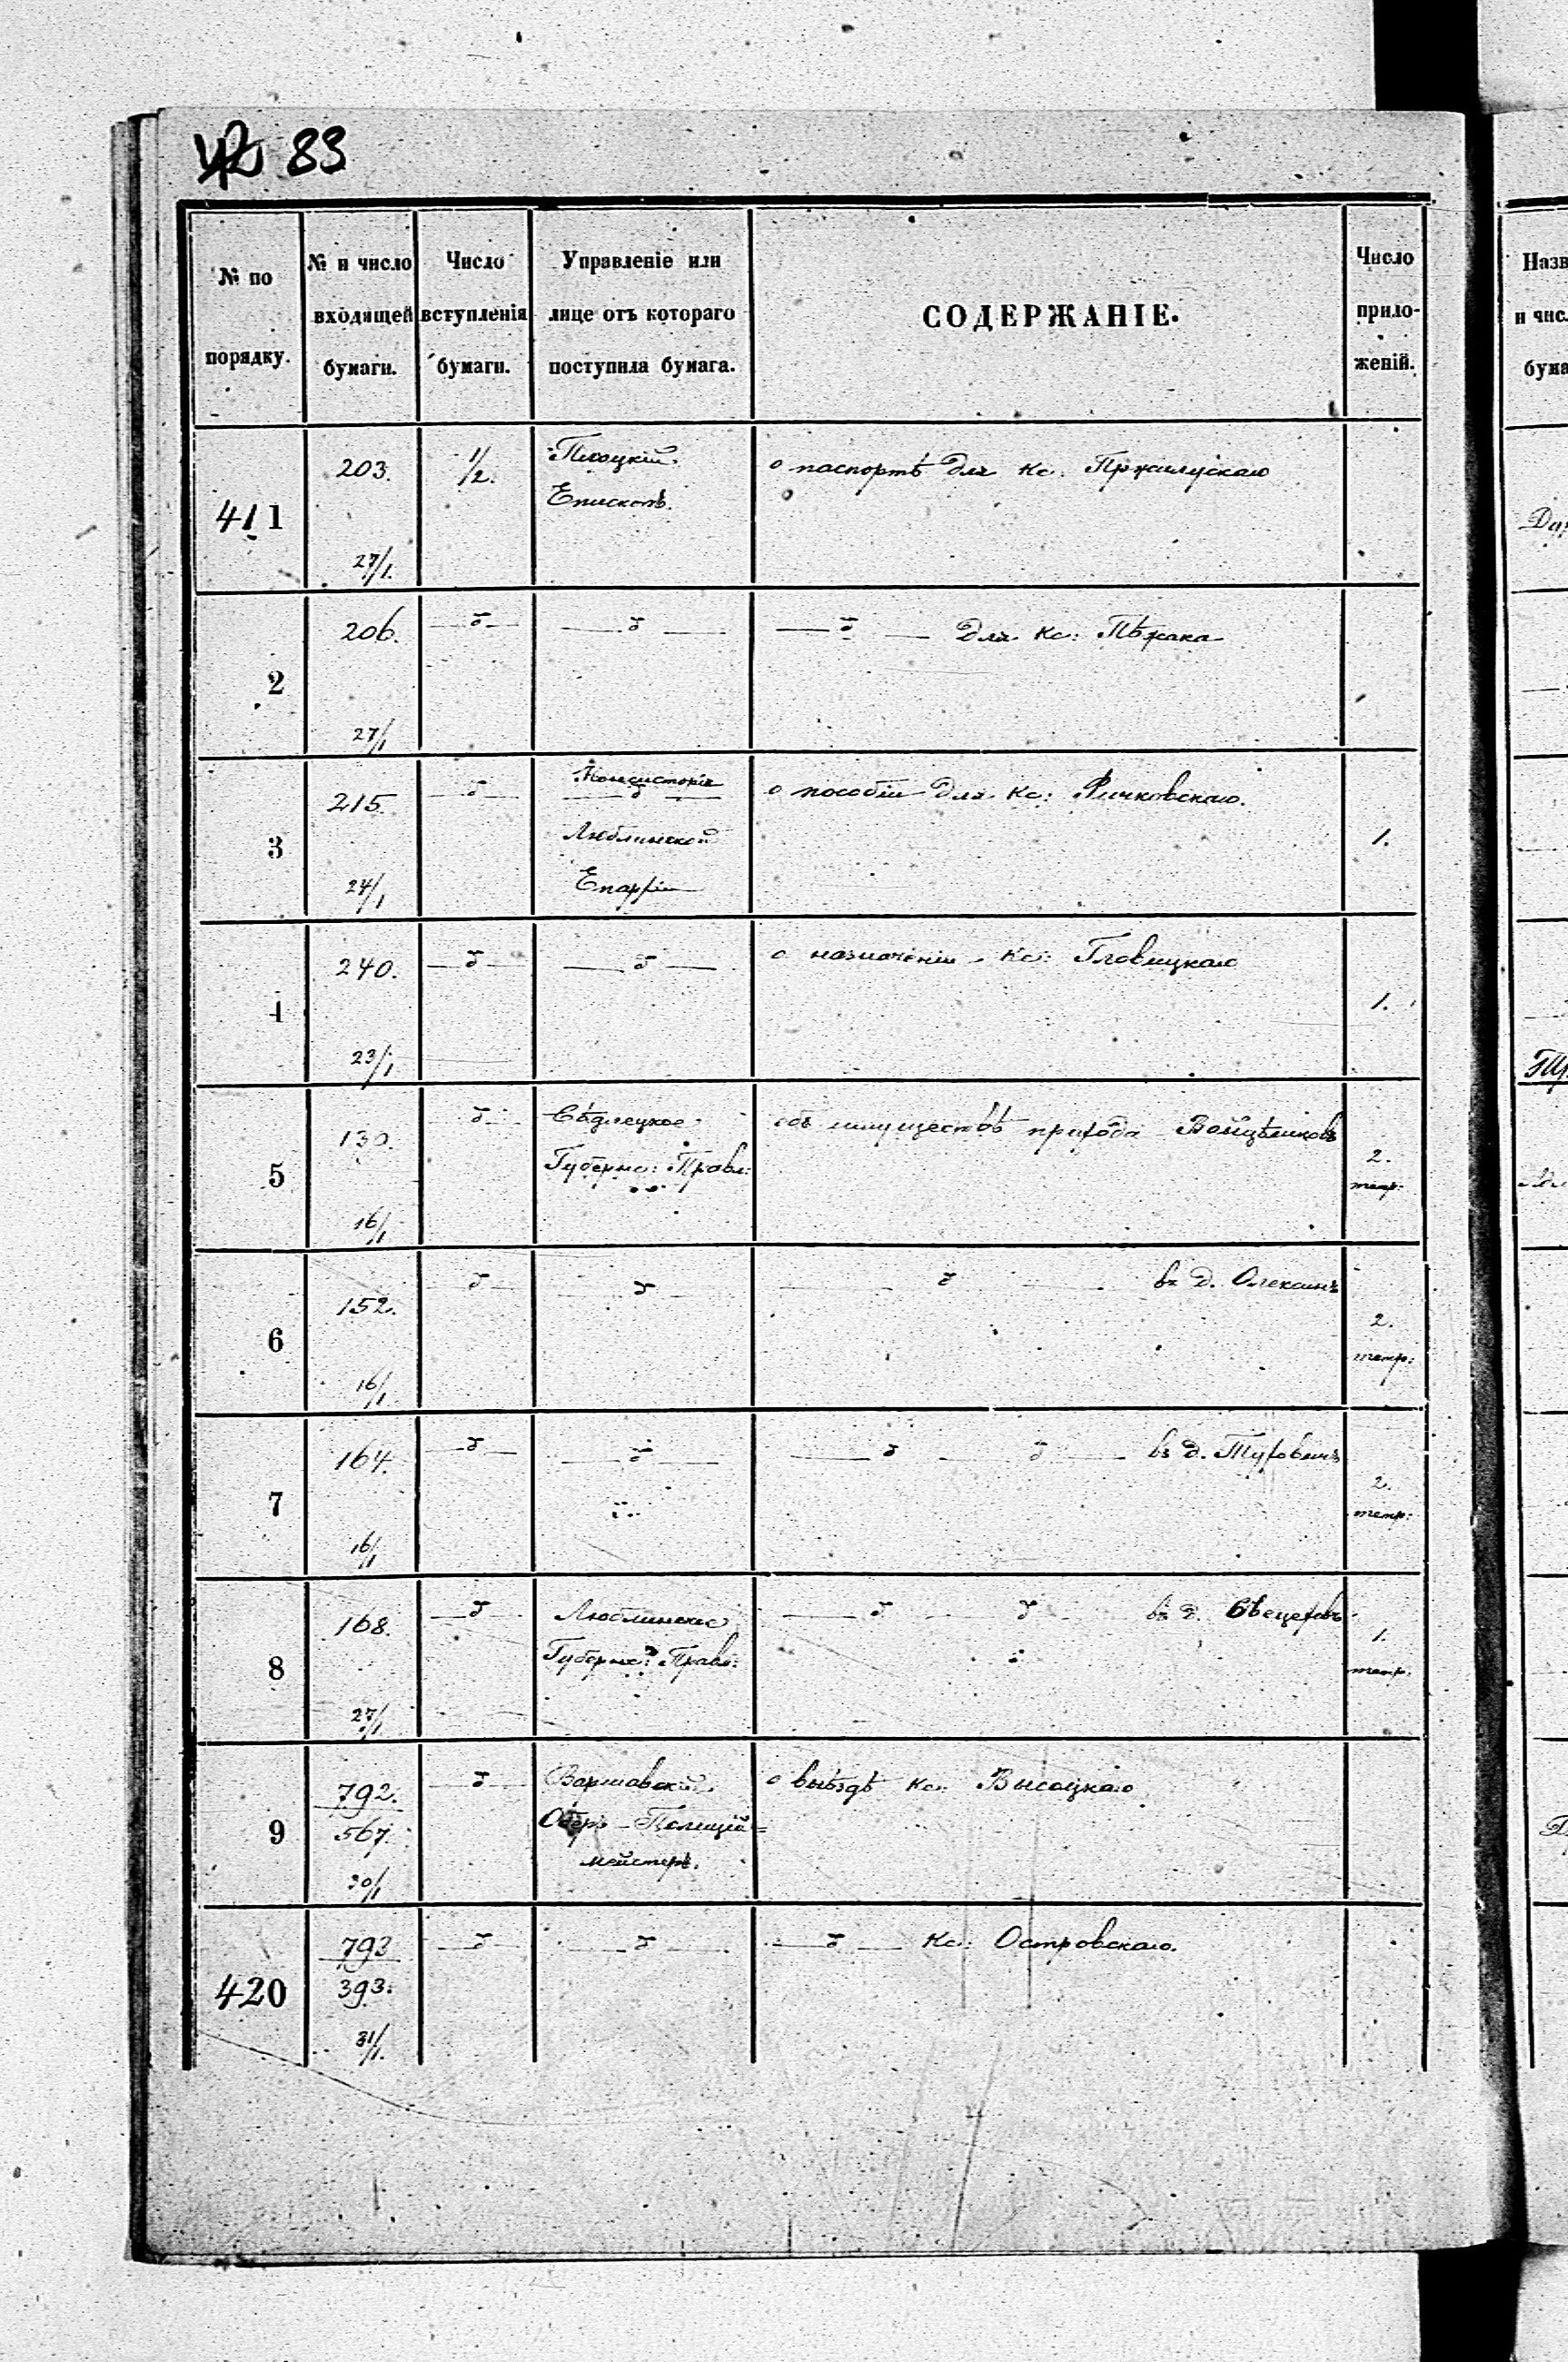 83
№ по порядку.
№ и число входящей бумаги.
Число вступленія бумаги.
Управленіе или лице отъ котораго поступила бумага.
СОДЕРЖАНІЕ.
Число приложеній.
411 203. 27/1. 1/2. Плоцкій Епископъ. о паспортѣ для Кс. Пржилускаго
2 206. 27/1 —ъ— —ъ— —ъ— для Кс: Пѣжака
3 215. 24/1 —ъ— Консисторія —ъ— Люблинской Епархіи о пособіи для Кс: Ричковскаго. 1.
4 240. 23/1 —ъ— —ъ— о назначеніи Кс: Гловицкаго 1.
5 130. 16/1 ъ Сѣдлецкое Губернс: Правл: объ имуществѣ прихода 2. тетр:
6 152. 16/1 ъ ъ — ъ — въ д. Олексинъ 2. тетр:
7 164. 16/1 —ъ— —ъ— — ъ — ъ — въ д. Туровецъ 2. тетр:
8 168. 27/1 —ъ— Люблинское Губернс: Правл: — ъ — ъ въ д. 1. тетр.
9 792. 567. 30/1 —ъ— Варшавскій Оберъ-Полицій= мейстеръ. о выѣздѣ Кс. Высоцкаго
420 793 393. 31/1. —ъ— —ъ— —ъ— Кс: Островскаго.
Назв
и чис
бума